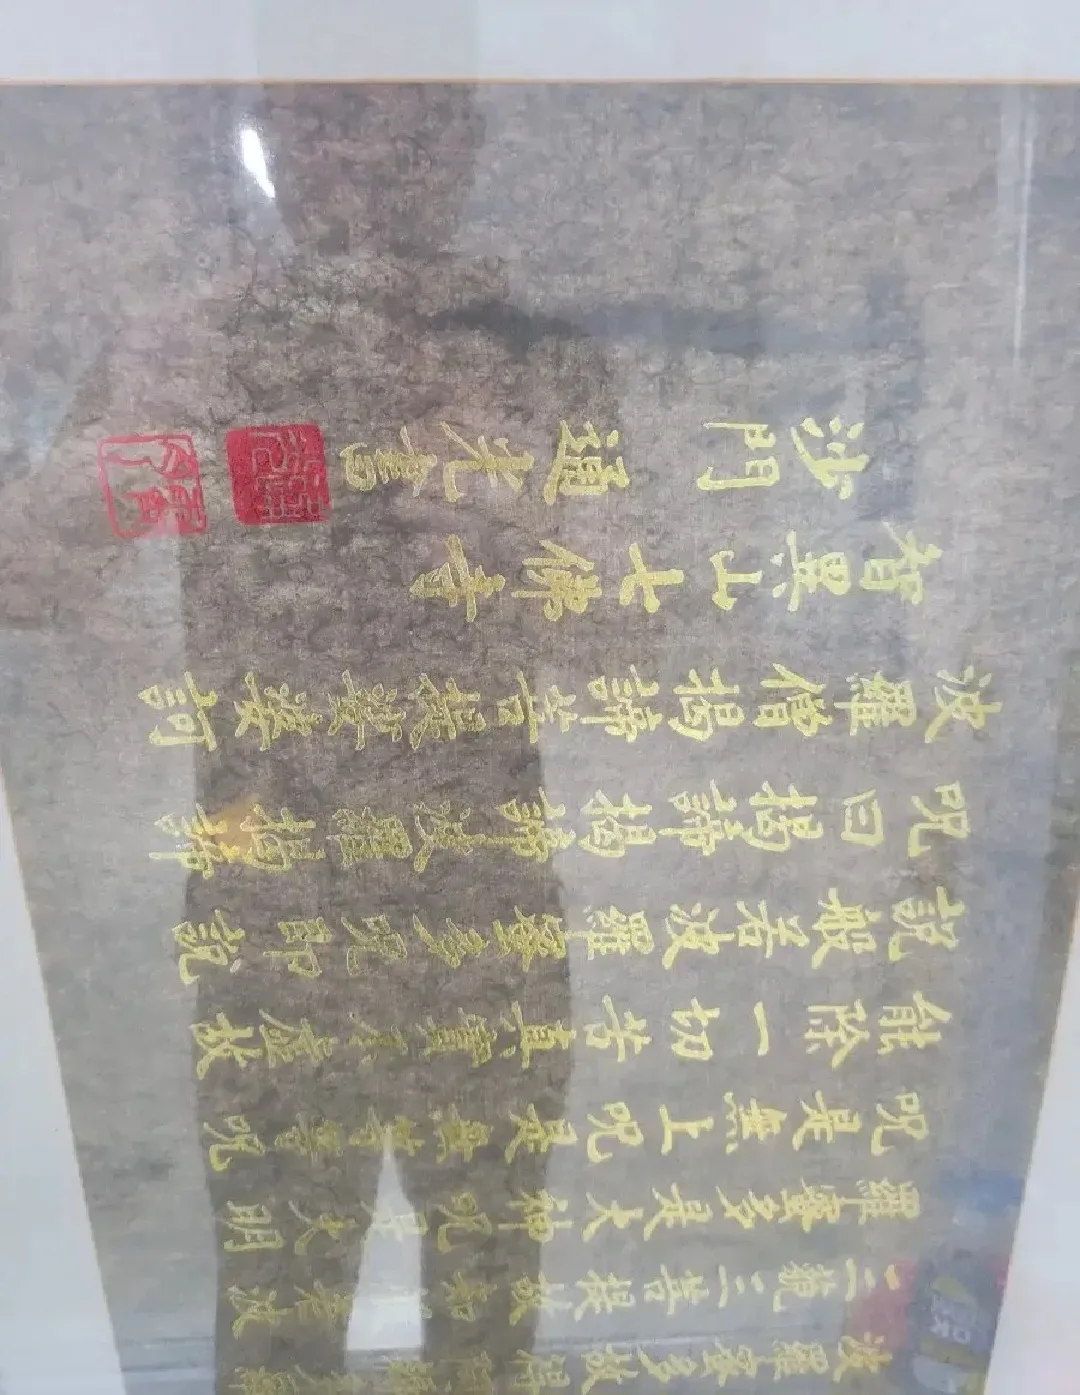 波羅蜜多故得阿耨多羅
三藐三菩提故知般若波
羅蜜多是大神呪是大明
呪是無上呪是無等等呪
能除一切苦真實不虛故
說般若波羅蜜多呪即說
呪曰揭諦揭諦波羅揭諦
波羅僧揭諦菩提娑婆訶
智異山七佛寺
沙門 通光書